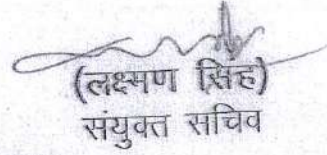 (लक्ष्मण सिंह)
संयुक्त सचिव